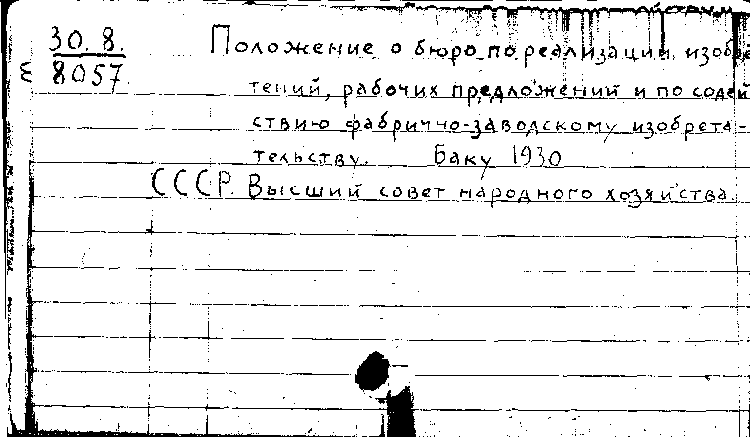 30.8.
Положение о бюро по реализации изобре
8057
тений, рабочих предложений и по содей
ствию фабрично-заводскому изобрета-
тельству. Баку 1930
СССР. Высший совет народного хозяйства.